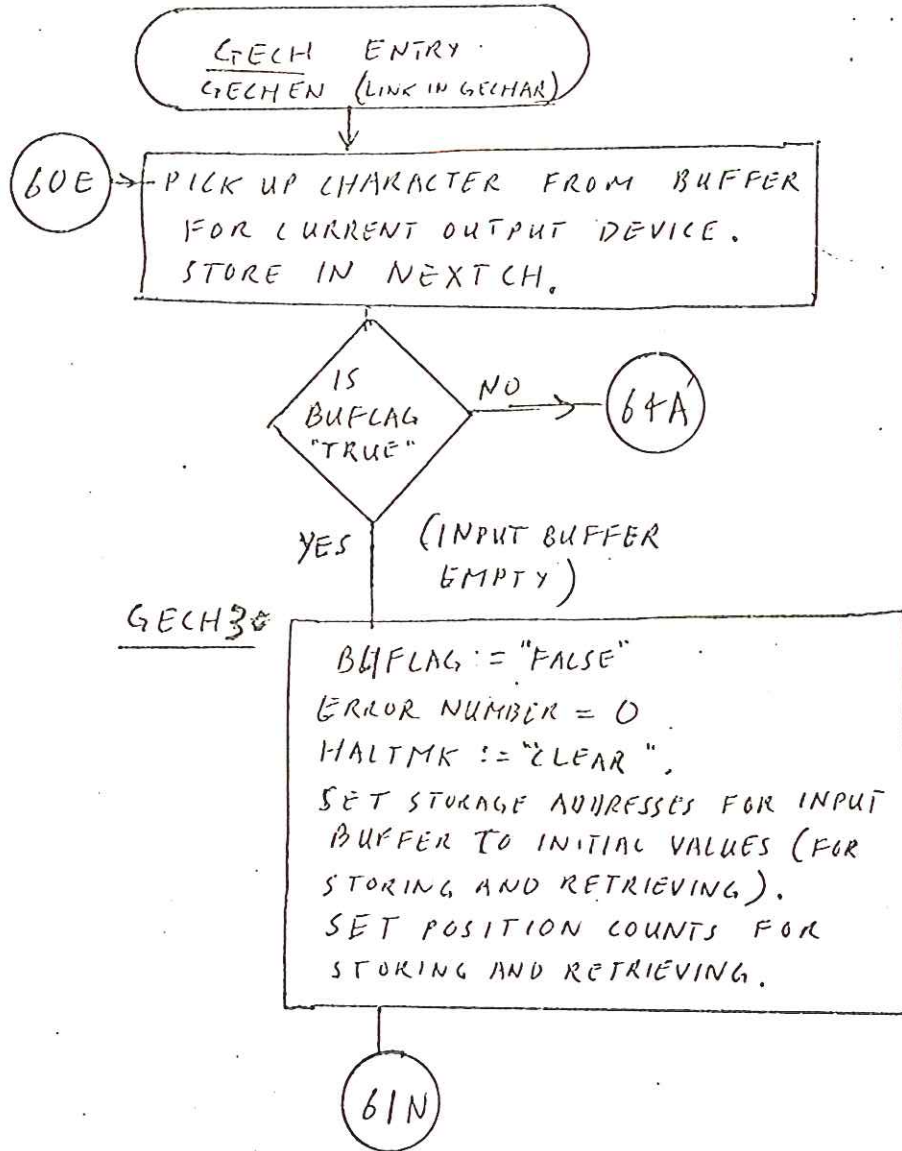 GECH ENTRY
GECHEN (LINK IN GECHAR)
60E
PICK UP CHARACTER FROM BUFFER
FOR CURRENT OUTPUT DEVICE.
STORE IN NEXTCH.
IS
BUFLAG
"TRUE"
NO
64A
YES
(INPUT BUFFER
EMPTY)
GECH30
BUFLAG := "FALSE"
ERROR NUMBER = 0
HALTMK := "CLEAR".
SET STORAGE ADDRESSES FOR INPUT
BUFFER TO INITIAL VALUES (FOR
STORING AND RETRIEVING).
SET POSITION COUNTS FOR
STORING AND RETRIEVING.
61N